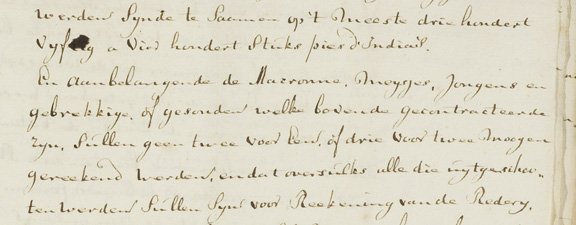 werden Synde te Saamen op't Meeste driehondert
Vyftig a Vier hondert Stuks pies d'India's.
En aanbelangende de Macronne, Meysjes, Jongens en
gebrekkige, of gesonden welke bovende gecontracteerde
zyn, Sullen geen twee voor Een, of drie voor twee Moogen
gereekend werden, en dat oversulks alle die uytgeschoo-
ten werden Sullen Syn voor Reekening van de Redery,